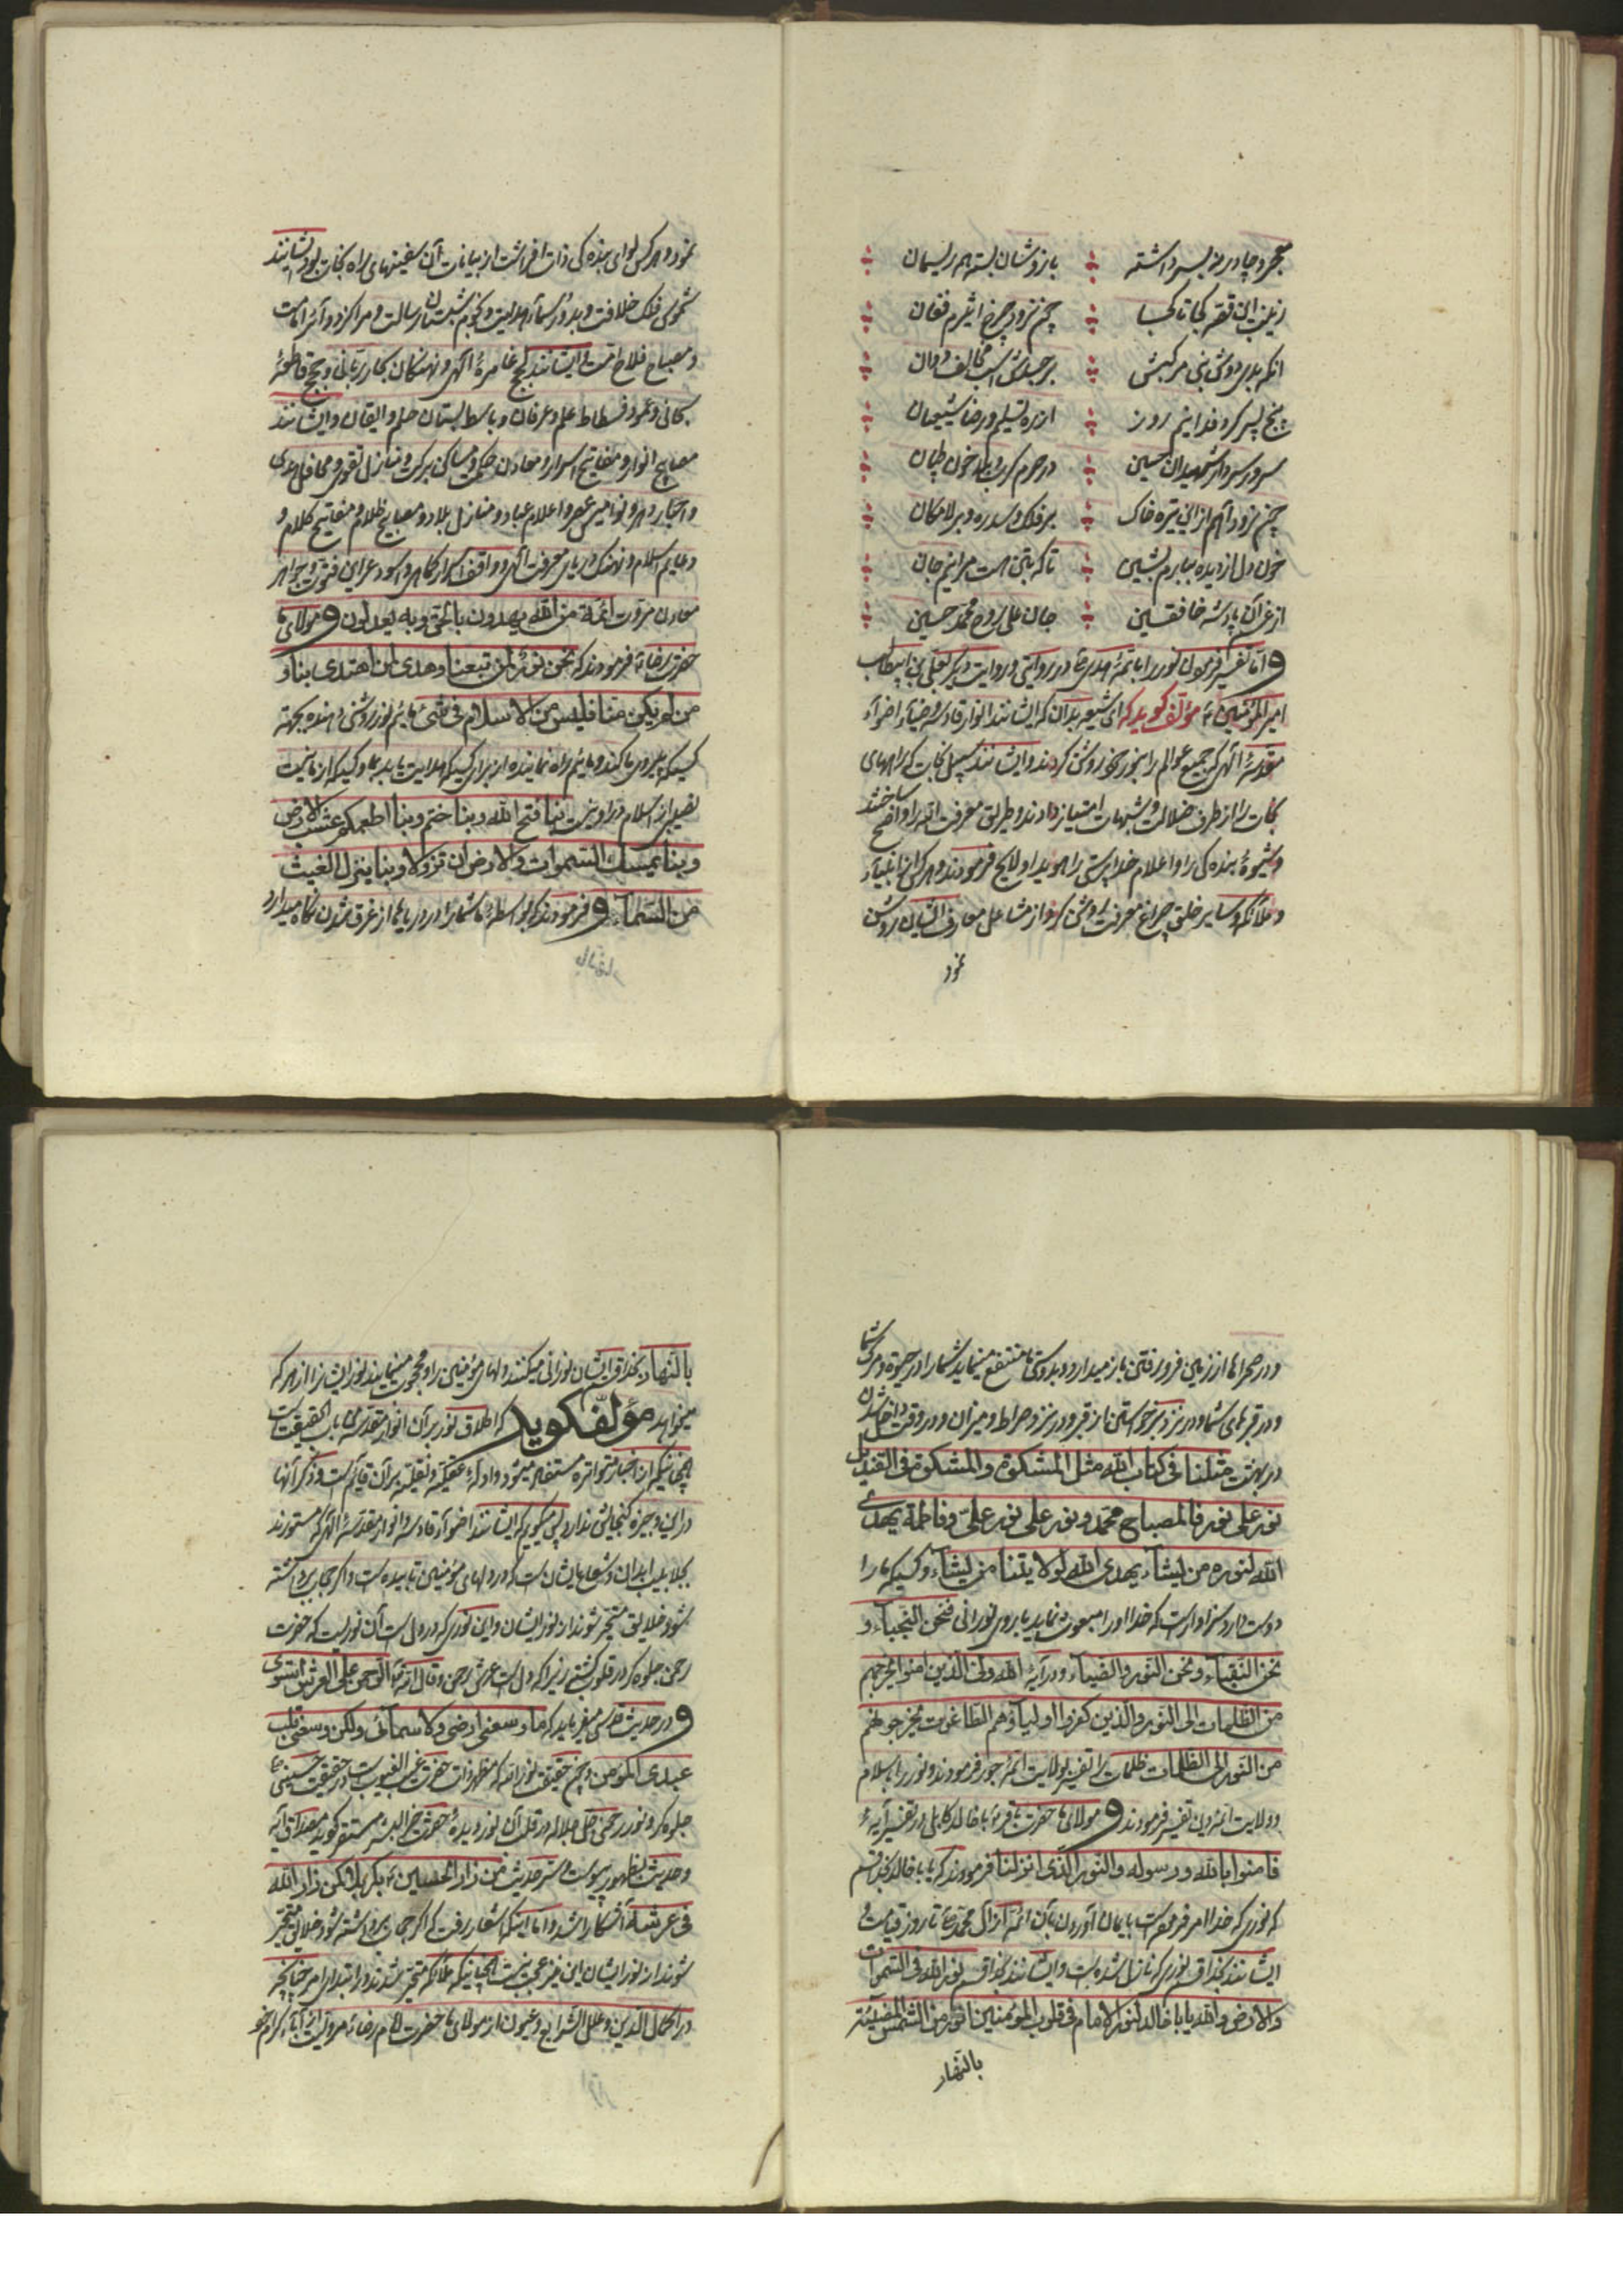 معجر و چادر ز سر برداشته بازوشان بسته بهم ریسمان
زینب این قصه کجا تا کجا چون نزود چرخ اثیرم فغان
آنکه بدی دوش نبی مرکبش بر جسدش اسب مخالف دوان
پنج پسر کرد فدا نیم روز از ره تسلیم و رضا شیعیان
سرور سردار شهیدان حسین در حرم کرببلا خون طپان
چون نزود آهم ازین تیره خاک بر فلک و سدره و بر لامکان
خون دل از دیده ببارم بشیب تا که بتن هست مرا نیم جان
از غم آن پادشه خافقین جان علی روح محمد حسین
و اما تفسیر فرمودن نور را بائمه هدی در روایتی و در روایت دیگر بعلی بن ابیطالب
امیر المؤمنین مؤلف گوید که ای شیعه بدان که ایشانند انوار قادسه و ضیاء و اضواء
مقدسه الهی که جمیع عوالم را بنور خود روشن کردند و ایشانند سبیل نجات که راههای
نجات را از طرف ضلالت و شبهات امتیاز دادند و طریق معرفت الله را واضح ساختند
و شیوه بندگی را و اعلام خداپرستی را هویدا و لایح فرمودند و هر که از انبیاء
و ملائکه و سایر خلق چراغ معرفت روشن کرد از مشاعل معارف ایشان روشن
نمود
نمود و هر کس لوای بندگی ذات افراشت از بیانات آن سفینهای راه نجات بود و ایشانند
شموس فلک خلافت و بدور سماء هدایت و نجوم شبستان رسالت و مراکز دوائر امامت
و مصباح فلاح امت و ایشانند لجج غامره الهی و نهنگان بحار ربانی و حجج قاطعه
سبحانی و عمود فسطاط علم و عرفان و باسط بستان حلم و ایقان و ایشانند
مصابیح انوار و مفاتیح اسرار و معادن حکمت و مساکن برکت و منازل تقوی و محافل هدی
و احبار دهر و نوامیس عصر و اعلام عباد و منازل بلاد و مصابیح ظلام و مفاتیح کلام و
دعایم اسلام و نهنگ دریای معرفت الهی و واقف اسرار کماهی و اسود عراین فتوت و جواهر
معادن مروت ائمة من الله یهدون بالحق و به یعدلون و مولای ما
حضرت رضا فرمودند که نحن نور لمن تبعنا و هدی لمن اهتدی بنا و
من لم یکن منا فلیس من الاسلام فی شئ مائیم نور روشنی دهنده بجهة
کسیکه پیروی ما کند و مائیم راه نماینده از برای کسیکه هدایت یابد بما و کسیکه از ما نیست
نصیبی از اسلام در او نیست بنا فتح الله و بنا ختم و بنا اطعمکم عشب الارض
و بنا یمسک السموات و الارض ان تزولا و بنا ینزل الغیث
من السماء و فرمودند که بواسطه ما شما را در دریاها از غرق شدن نگاه میدارد
و در صحراها از زمین فرو رفتن باز میدارد و بدوستی ما منتفع مینماید شما را در حیوة و مرگ شما
و در قبرهای شما و در نزد برخواستن از قبر و در نزد صراط و میزان و در وقت داخل شدن
در بهشت مثلنا فی کتاب الله مثل المشکوة و المشکوة فی القندیل
نور علی نور فالمصباح محمد و نور علی نور علی و فاطمة یهدی
الله لنوره من یشاء یهدی الله لولایتنا من یشاء و کسیکه ما را
دوست دارد سزاوار است که خدا او را مبعوث نماید با روی نورانی فنحن النجباء و
نحن النقباء و نحن النور و الضیاء و در آیه الله ولی الذین امنوا یخرجهم
من الظلمات الی النور و الذین کفروا اولیاؤهم الطاغوت یخرجونهم
من النور الی الظلمات ظلمات را تفسیر بولایت ائمه جور فرمودند و نور را باسلام
و ولایت ائمه دین تفسیر فرمودند و مولای ما حضرت باقر با ابا خالد کابلی در تفسیر آیه
فامنوا بالله و رسوله و النور الذی انزلنا فرمودند که یا با خالد بخدا قسم
که نوری که خدا امر فرموده است بایمان آوردن بآن ائمه از آل محمد تا روز قیامت و
ایشانند بخدا قسم نوری که نازل شده است و ایشانند بخدا قسم نور الله فی السموات
و الارض و الله یا با خالد لنور الامام فی قلوب المؤمنین انور من الشمس المضیئة
بالنهار
بالنهار بخدا قسم ایشان نورانی میکنند دلهای مؤمنین را و محجوب مینمایند نور ایشان را از هر که
میخواهد مؤلف گوید که اطلاق نور بر آن انوار مقدسه من باب الحقیقت است
همچنانکه از اخبار متواتره مستفاد میشود و ادله عقلیه و نقلیه بر آن قایم است و ذکر آنها
در این وجیزه گنجایش ندارد پس میگوییم که ایشانند اضواء قادسه و انوار مقدسه الهی که مستورند
بجلابیب ابدان و شعاع ایشان است که در دلهای مؤمنین تابیده است و اگر حجاب برداشته
شود خلایق متحیر شوند از نور ایشان و این نوری که در دل است آن نوریست که حضرت
رحمن جلوه گر در قلوب گشته زیرا که دل است عرش رحمن و قال الله الرحمن علی العرش استوی
و در حدیث قدسی میفرماید که ما وسعنی ارضی و لا سمائی و لکن وسعنی قلب
عبدی المؤمن و چون حقیقت نور الله که مظهر ذات حضرت غیب الغیوب است در حقیقت حسینی
جلوه کرد و نور رحمن جل جلاله در قلب آن نور دیده حضرت خیر البشر مستقر گردید مصداق آیه
و حدیث بظهور پیوست و سر حدیث من زار الحسین بکربلا کمن زار الله
فی عرشه آشکارا شد و اما اینکه اشعار رفت که اگر حجاب برداشته شود خلایق متحیر
شوند از نور ایشان این نیز عجب نیست همچنانکه ملائکه متحیر شدند در ابتدای امر چنانچه
در اکمال الدین و علل الشرایع و عیون از مولای ما حضرت امام رضا مرویست از آباء کرام خود